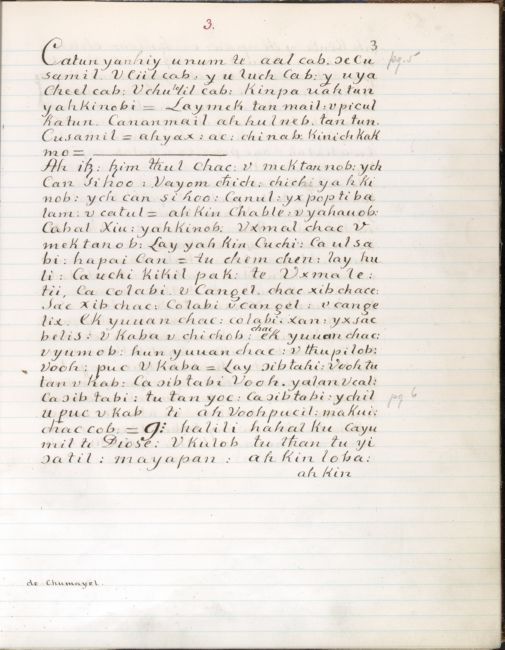 3.
3
Catun yanhiy unum te aal cab. ɔe Cu
samil. V Ciil cab. y u luch Cab: y u ya
cheel cab: V chukil cab: Kinpauahtun
yahkinobi = Lay mek tan mail: v picul
Katun. Cananmail ah hulneb. tan tun.
Cusamil = ah yax: ac: chinab: Kinich kak
mo =
Ah itz: tzim thul chac: v mektannob: ych
Can Si hoo: Vayom chich: chich: yahki
nob: ych can si hoo: Canul: yx pop ti ba
lam: v catul = ah kin Chable: v yahauob:
Cabal Xiu: yahkinob: Vxmal chac v
mektanob: Lay yah Kin Cuchi: Ca ulsa
bi: hapai Can = tu chem chen: lay hu
li: Ca uchi kikil pak: te Vxmale:
tii, Ca colabi v Cangel. chac xib chace:
Sac xib chac: Colabi v can gel: v cange
lix. EK yuuan chac: colabi. xan: yx sac
belis: v Kaba v chichob: chac ek yuuan chac:
v yumob: hun yuuan chac: v thupilob:
Vooh: puc V Kaba = Lay ɔibtahi: Vooh tu
tan v kab: Ca ɔibtabi Vooh. yalan v cal:
Ca ɔib tabi: tu tan yoc: Ca ɔibtabi: ychil
u puc v kab ti ah Vooh pucil: makui:
chac cob. = halili hahal ku Cayu
mil ti Diose: V kulob tu than tu yi
ɔatil: mayapan: ah kin loba:
ah kin
pg. 5
pg. 6
de Chumayel.